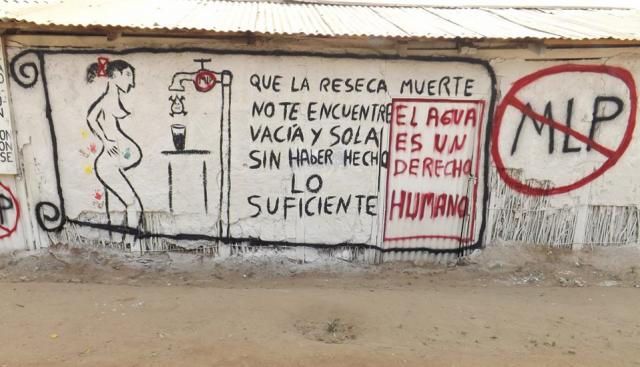 QUE LA RESECA MUERTE
NO TE ENCUENTRE
VACIA Y SOLA
SIN HABER HECHO
LO
SUFICIENTE
EL AGUA
ES UN
DERECHO
HUMANO
MLP